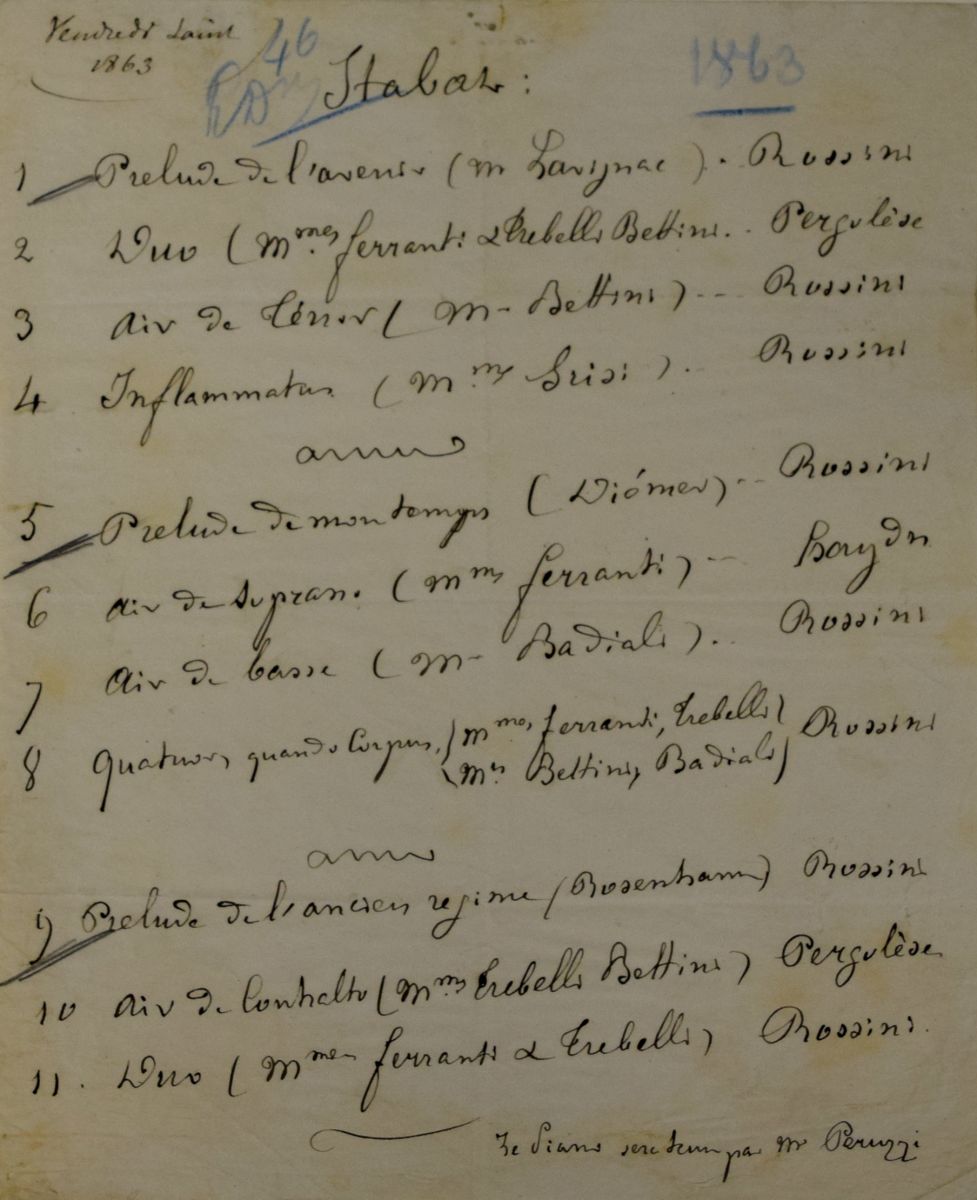 Vendredi Saint
1863
46
Stabat :
1863
1 Prelude de l'avenir (M Lavignac). Rossini
2 Duo (Mmes ferranti & Trebelli Bettini.. Pergolèse
3 Air de Ténor (M- Bettini) -- Rossini
4 Inflammatus (Mme Grisi). Rossini
5 Prelude de mon temps (Diémer) -- Rossini
6 Air de Soprano (Mme ferranti) -- Haydn
7 Air de basse (M- Badiali). Rossini
8 Quatuor, quando Corpus, (Mmes ferranti, Trebelli) Rossini
(Mrs Bettini, Badiali)
9 Prelude de l'ancien regime (Rosenhann) Rossini
10 Air de Contralto (Mme Trebelli Bettini) Pergolèse
11. Duo (Mmes ferranti & Trebelli) Rossini.
Le Piano sera tenu par Mr Peruzzi